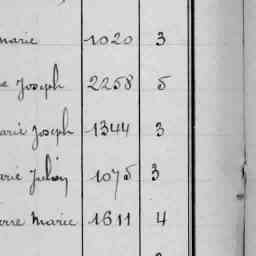 marie 1020 3
Joseph 2258 5
arie Joseph 1344 3
arie Julien 1075 3
erre Marie 1611 4